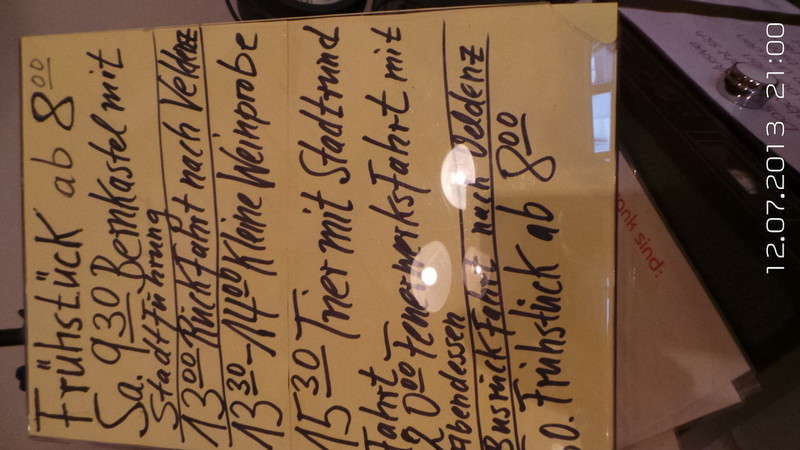 Frühstück ab 8 00
Sa. 9 30 Bernkastel mit
Stadtführung
13 00 Rückfahrt nach Veldenz
13 30 - 14 00 Kleine Weinprobe
15 30 Trier mit Stadtrund
fahrt
20 00 Feuerwerksfahrt mit
Abendessen
Busrückfahrt nach Veldenz
So. Frühstück ab 8 00
ank sind:
12.07.2013 21:00